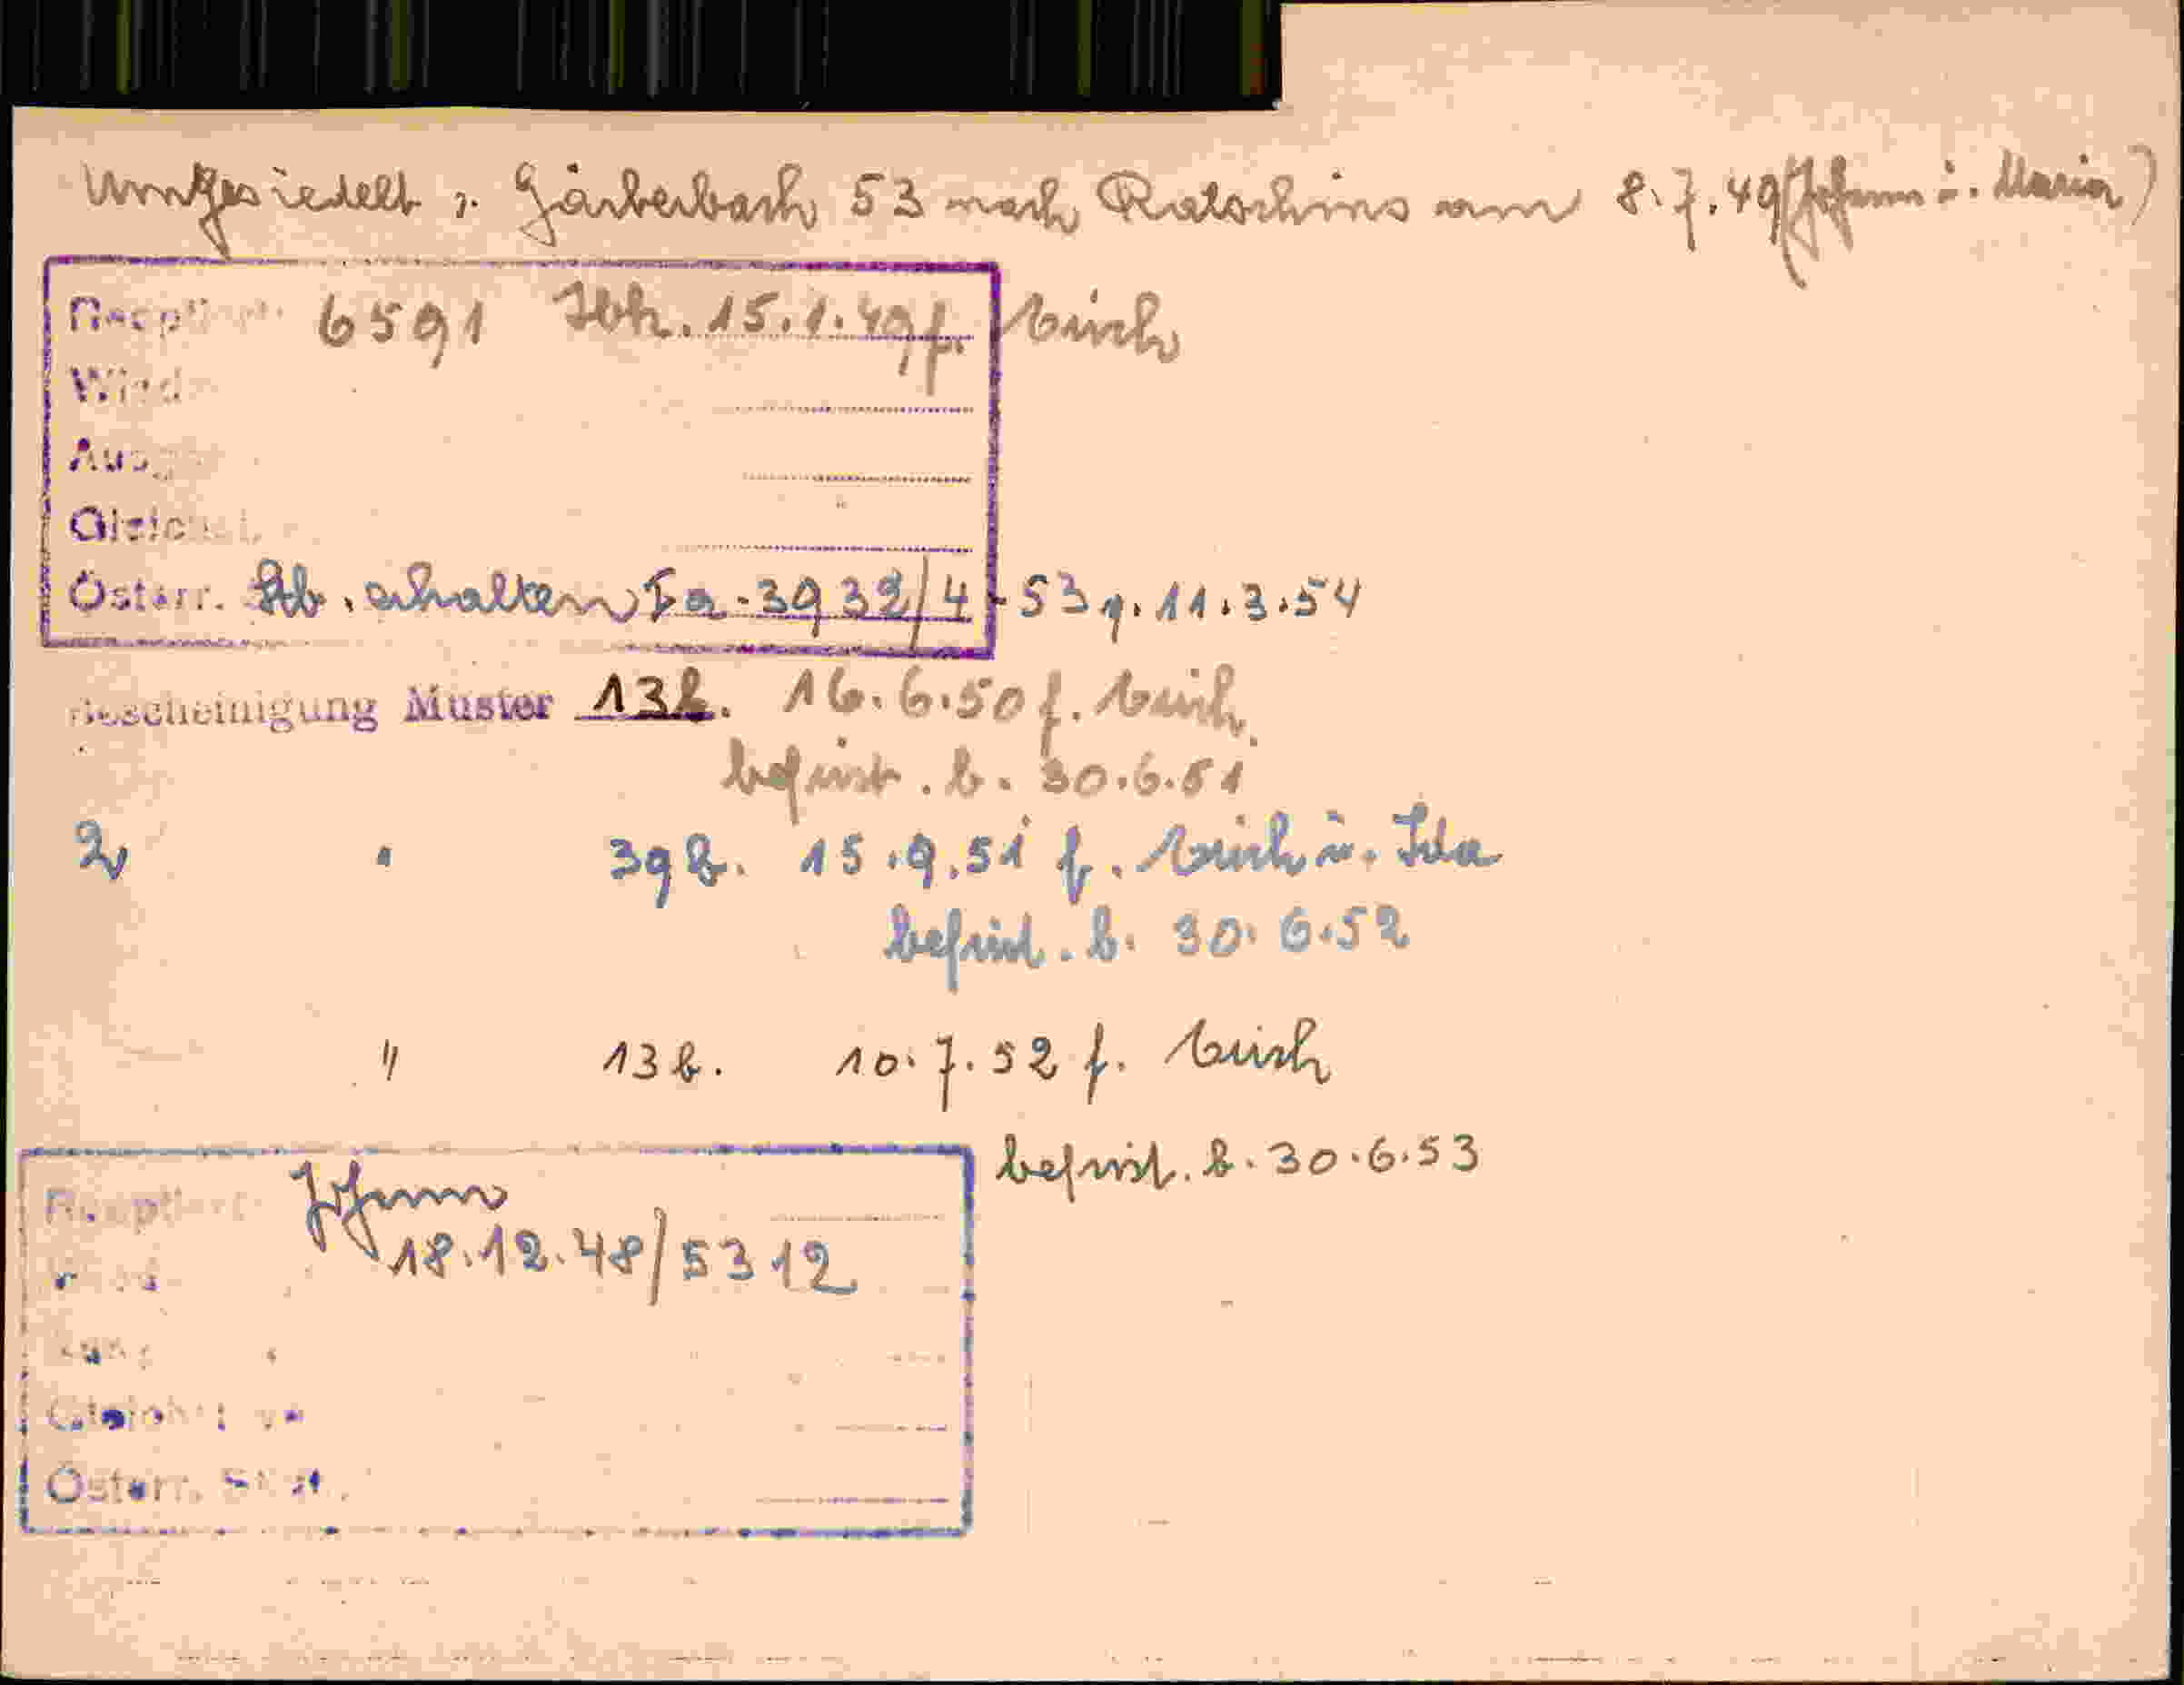 Umgesiedelt v. Gärberbach 53 nach Ratschins am 8.7.49 (Johann u. Maria)
6591 Ibk. 15.1.49 f. Erich
Österr. Stb. erhalten Ia-3932/4-53 v. 11.3.54
Bescheinigung Muster 13b. 16.6.50 f. Erich
befrist. b. 30.6.51
2 " 39b. 15.9.51 f. Erich u. Ida
befrist. b. 30.6.52
" 13b. 10.7.52 f. Erich
befrist. b. 30.6.53
Johann
18.12.48/5312
Österr.